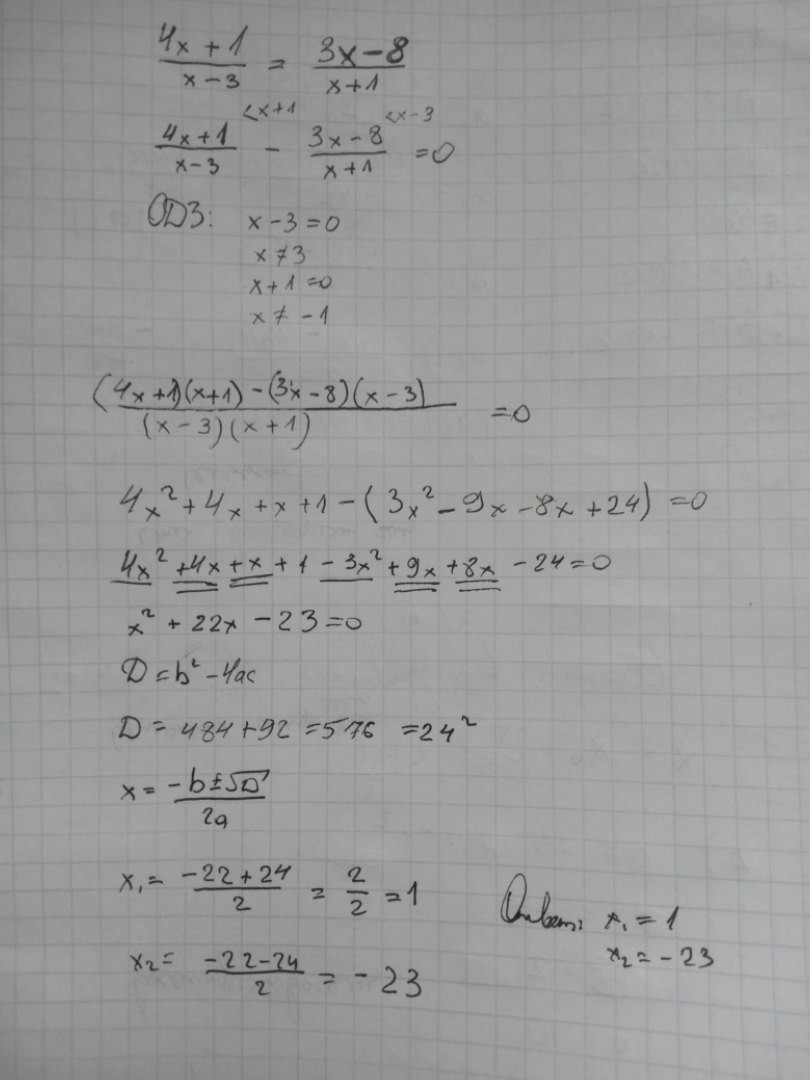 (4x + 1)/(x - 3) = (3x - 8)/(x + 1)
(4x + 1)/(x - 3) <x+1 - (3x - 8)/(x + 1) <x-3 = 0
ОДЗ: x - 3 = 0
x ≠ 3
x + 1 = 0
x ≠ - 1
((4x + 1)(x + 1) - (3x - 8)(x - 3))/((x - 3)(x + 1)) = 0
4x² + 4x + x + 1 - (3x² - 9x - 8x + 24) = 0
4x² + 4x + x + 1 - 3x² + 9x + 8x - 24 = 0
x² + 22x - 23 = 0
D = b² - 4ac
D = 484 + 92 = 576 = 24²
x = (-b ± √D)/(2a)
x₁ = (-22 + 24)/2 = 2/2 = 1
x₂ = (-22 - 24)/2 = - 23
Ответ: x₁ = 1
x₂ = - 23